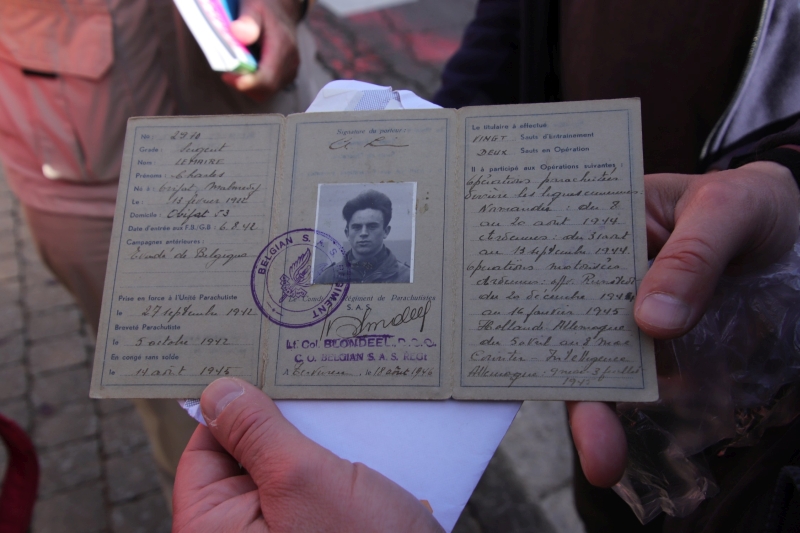 No. : 2970
Grade : Sergent
Nom : LEMAIRE
Prénoms : Charles
Né à :
Le : 13 février 1922
Domicile :
Date d'entrée aux F.B.G.B : 6.8.42
Campagnes antérieures :
Armée de Belgique
Prise en force à l'Unité Parachutiste
le 27 septembre 1942
Breveté Parachutiste
le 5 octobre 1942
En congé sans solde
le 14 août 1945
Signature du porteur
BELGIAN S.A.S. REGIMENT
Régiment de Parachutistes
S.A.S.
Blondeel
Lt. Col. BLONDEEL, D.S.O.
C. O. BELGIAN S.A.S. REGT
à Tervuren, le 18 août 1946
Le titulaire a effectué
VINGT Sauts d'Entraînement
DEUX Sauts en Opération
Il a participé aux Opérations suivantes :
Opérations parachutées
Derrière les lignes ennemies :
Normandie : du 8
au 20 août 1944
Ardennes : du 31 août
au 13 septembre 1944
Opérations motorisées
Ardennes : off. Rundstedt
du 20 décembre 1944
au 16 janvier 1945
Hollande Allemagne
du 5 avril au 8 mai
Counter-Intelligence
Allemagne : 9 mai 3 juillet
1945